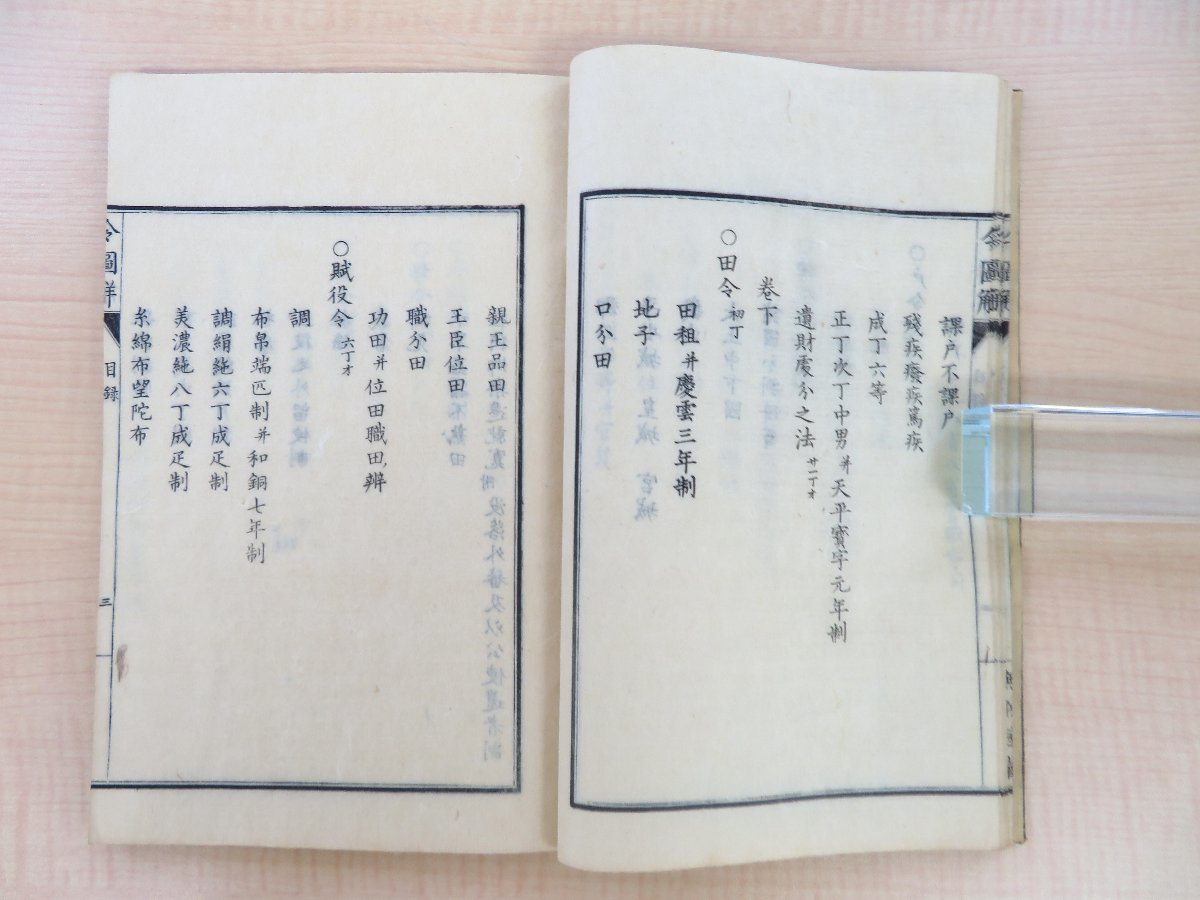 令圖解
課戶不課戶
殘疾癈疾篤疾
成丁六等
正丁次丁中男并天平寶字元年制
遺財處分之法 廿一丁オ
卷下
○田令 初丁
田租并慶雲三年制
地子
口分田
親王品田
王臣位田
職分田
功田并位田職田辨
○賦役令 六丁オ
調
布帛端匹制并和銅七年制
調絹絁六丁成疋制
美濃絁八丁成疋制
糸綿布望陀布
令圖解 目録 三